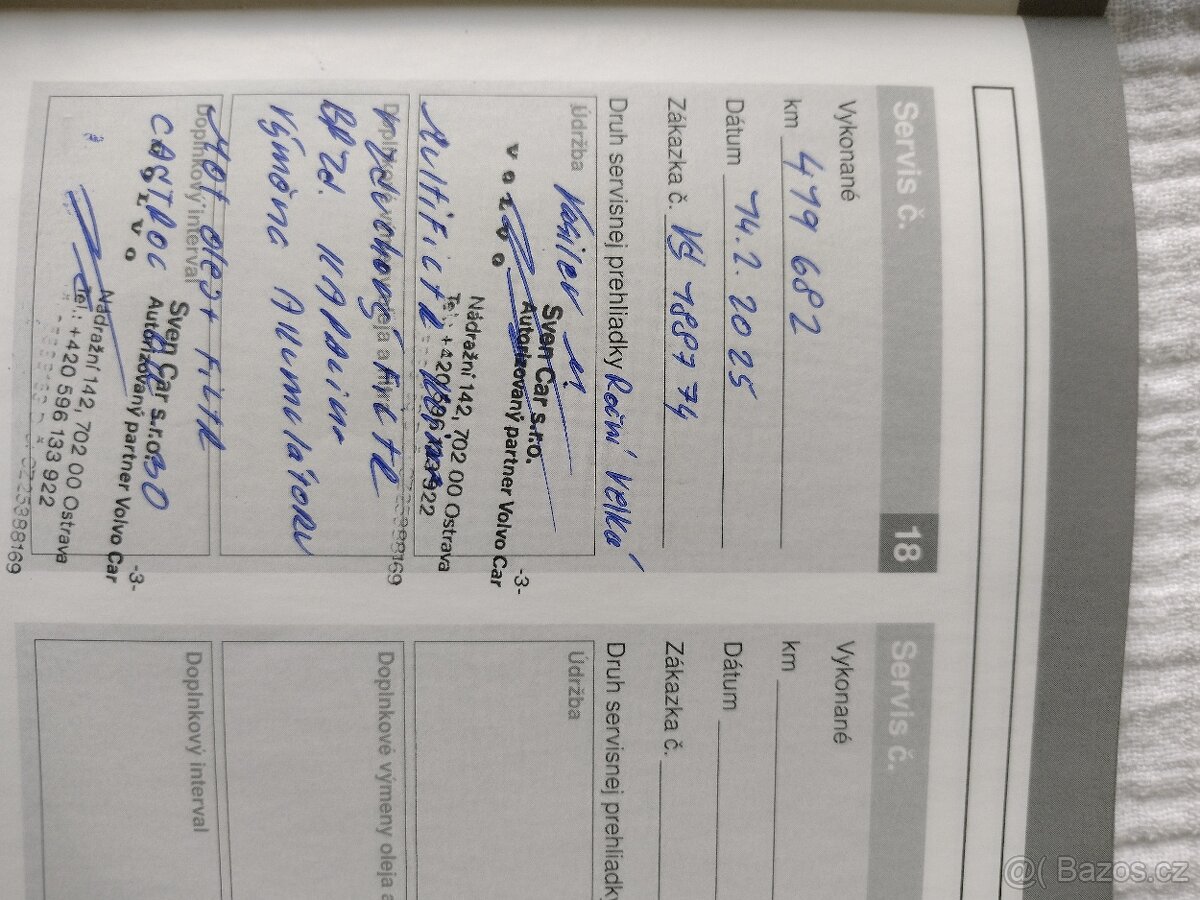 Servis č. 18
Vykonané
km 479 682
Dátum 14.2.2025
Zákazka č. VJ 788774
Druh servisnej prehliadky Roční Velká
Údržba
VOLVO
Sven Car s.r.o.
Autorizovaný partner Volvo Car
-3-
Nádražní 142, 702 00 Ostrava
Tel.: +420 596 133 922
Multifiltr
Doplnkové výmeny oleja a filtr
Vzduchový Filtr
BRZd. KAPALINA
Výměna AKUMULÁTORU
Doplnkový interval
Mot olej + FILTR
CASTROL
VOLVO
Sven Car s.r.o.
Autorizovaný partner Volvo Car
-3-
Nádražní 142, 702 00 Ostrava
Tel.: +420 596 133 922
Servis č.
Vykonané
km
Dátum
Zákazka č.
Druh servisnej prehliadky
Údržba
Doplnkové výmeny oleja a
Doplnkový interval
@( Bazos.cz